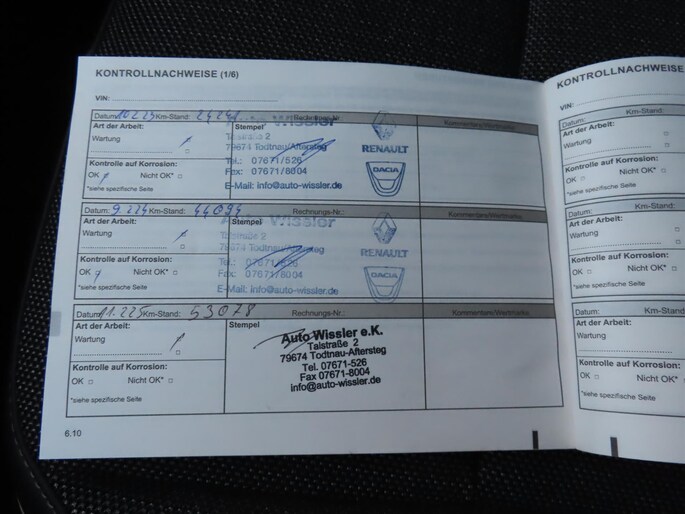 KONTROLLNACHWEISE (1/6)
VIN:
Datum: 10.2.23 Km-Stand: Rechnungs-Nr.: Kommentare/Werkmarke
Art der Arbeit: Stempel Wissler
Wartung Talstrasse 2
79674 Todtnau/Aftersteg
Kontrolle auf Korrosion: Tel.: 07671/526
OK Nicht OK* Fax: 07671/8004
*siehe spezifische Seite E-Mail: info@auto-wissler.de
RENAULT
DACIA
Datum: 9.2.24 Km-Stand: 44094 Rechnungs-Nr.:
Art der Arbeit: Stempel Wissler
Wartung Talstrasse 2
79674 Todtnau/Aftersteg
Kontrolle auf Korrosion: Tel.:
OK Nicht OK* Fax: 07671/8004
*siehe spezifische Seite E-Mail: info@auto-wissler.de
RENAULT
DACIA
Datum: 11.2.25 Km-Stand: 53078 Rechnungs-Nr.:
Art der Arbeit: Stempel
Wartung
Auto Wissler e.K.
Talstraße 2
79674 Todtnau-Aftersteg
Tel. 07671-526
Fax 07671-8004
info@auto-wissler.de
Kontrolle auf Korrosion:
OK Nicht OK*
*siehe spezifische Seite
6.10
KONTROLLNACHWEISE
VIN:
Datum: Km-Stand:
Art der Arbeit:
Wartung
Kontrolle auf Korrosion:
OK Nicht OK*
*siehe spezifische Seite
Datum: Km-Stand:
Art der Arbeit:
Wartung
Kontrolle auf Korrosion:
OK Nicht OK*
*siehe spezifische Seite
Datum: Km-Stand:
Art der Arbeit:
Wartung
Kontrolle auf Korrosion:
OK Nicht OK*
*siehe spezifische Seite